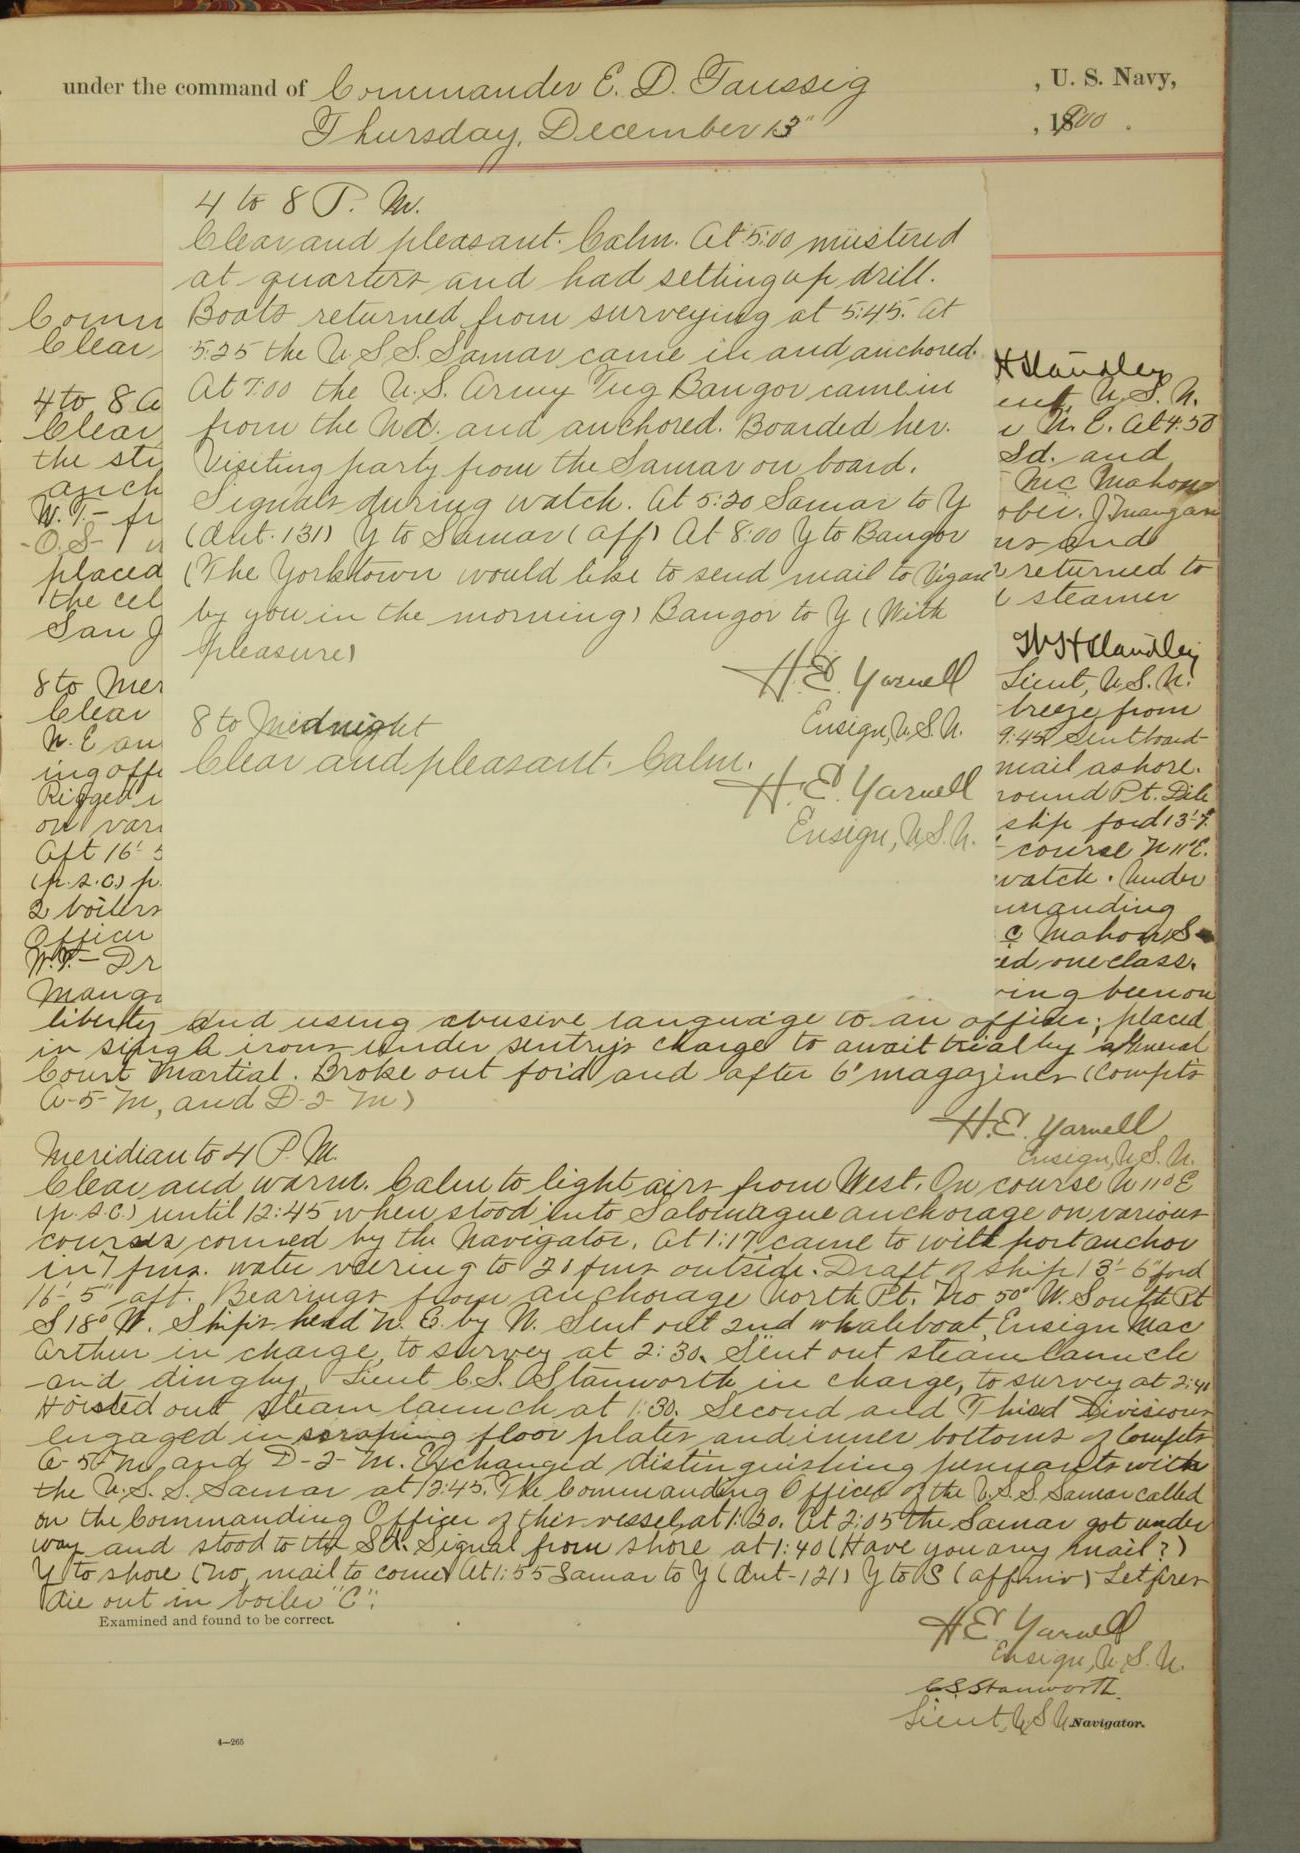 under the command of Commander E. D. Taussig, U. S. Navy,
Thursday, December 13", 1900.
4 to 8 P. M.
Clear and pleasant. Calm. At 5:00 mustered
at quarters and had setting up drill.
Boats returned from surveying at 5:45. At
5:25 the U.S.S. Samar came in and anchored.
At 7:00 the U.S. Army Tug Bangor came in
from the Nd. and anchored. Boarded her.
Visiting party from the Samar on board.
Signals during watch. At 5:20 Samar to Y
(Ant. 131) Y to Samar (aff) At 8:00 Y to Bangor
(The Yorktown would like to send mail to Vigan
by you in the morning) Bangor to Y (With
pleasure)
H. E. Yarnell
Ensign, U.S.N.
8 to Midnight
Clear and pleasant. Calm.
H. E. Yarnell
Ensign, U.S.N.
Clear,
4 to 8 A
Clear
the
W. T.
placed
the cel
San J
8 to Mer
Clear
N. E an
ing offi
Rigged
on vari
Aft 16' 5
(p.s.c.) p.
2 boilers
Officer
Mang
H Standley
U. S. N.
N. E. At 4:50
Sd. and
Mc Mahon
J Mangan
and
returned to
steamer
W H Standley
Lieut, U.S.N.
breeze from
9:45 Sent board-
mail ashore.
round Pt. Dile
ship for'd 13'
course N 11° E.
watch. Under
c Mahon, S
one class.
been on
liberty and using abusive language to an officer; placed
in single irons under sentry's charge to await trial by General
Court Martial. Broke out for'd and after 6" magazines (Compts
A-5-M, and D-2-M)
H. E. Yarnell
Ensign, U.S.N.
Meridian to 4 P. M.
Clear and warm. Calm to light airs from West. On course N 11° E
(p.s.c.) until 12:45 when stood into Salomague anchorage on various
courses conned by the Navigator. At 1:17 came to with port anchor
in 7 fms. water veering to 21 fms outside. Draft of ship 13'-6" for'd
16'-5" aft. Bearings from anchorage North Pt. No 50° W. South Pt
S 18° W. Ships head N. E. by N. Sent out 2nd whaleboat, Ensign Mac
Arthur in charge, to survey at 2:30. Sent out steam launch
and dinghy, Lieut C.S. Stanworth in charge, to survey at 2:40
Hoisted out steam launch at 1:30. Second and Third Divisions
engaged in scraping floor plates and inner bottoms of Compts
A-5-M, and D-2-M. Exchanged distinguishing pennants with
the U.S.S. Samar at 12:45. The Commanding Officer of the U.S.S. Samar called
on the Commanding Officer of this vessel at 1:20. At 2:05 the Samar got under
way and stood to the Sd. Signal from shore at 1:40 (Have you any mail?)
Y to shore (No, mail to come) At 1:55 Samar to Y (Ant-121) Y to S (affirm) Let fires
die out in boiler "C".
Examined and found to be correct.
H E Yarnell
Ensign, U.S.N.
C S Stanworth.
Lieut, U S N Navigator.
4—265